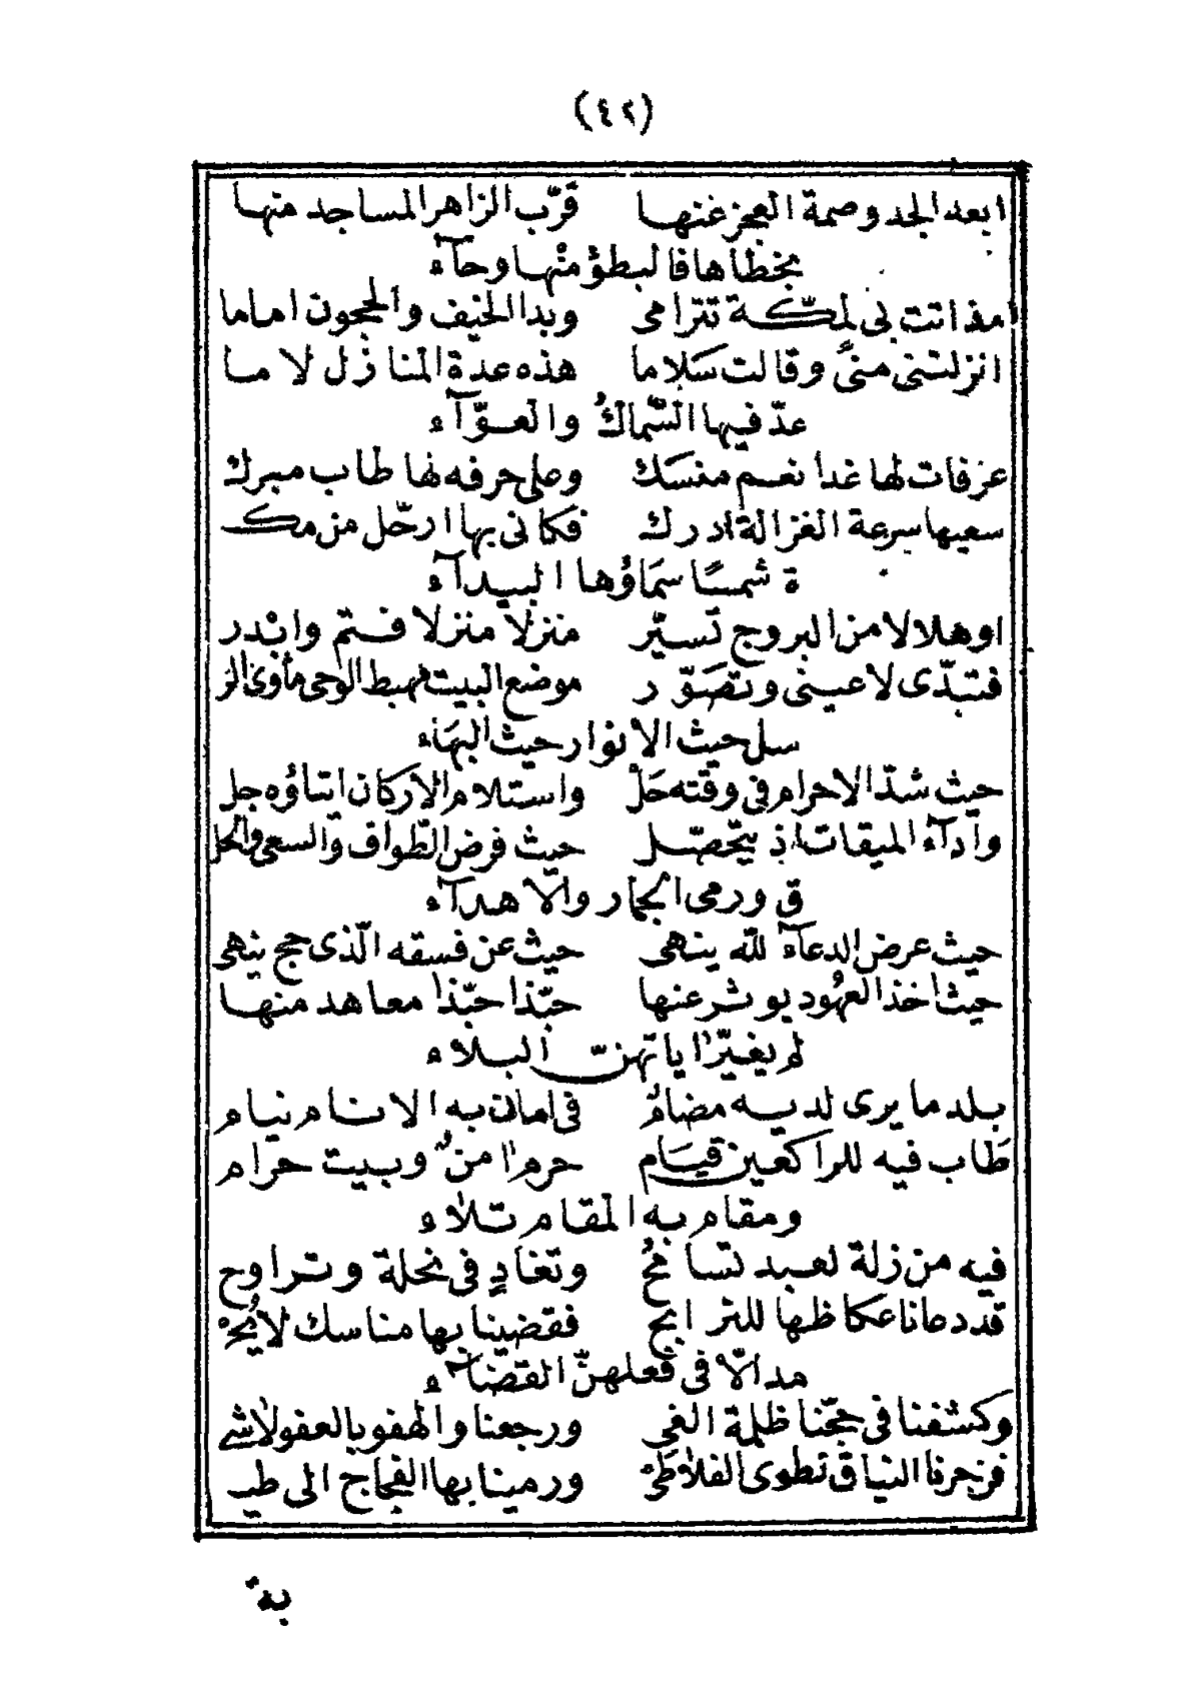 (٤٢)
ابعد الجد وصمة العجز عنها قرّب الزاهر المساجد منها
بخطاها فالبطؤ منها وحآء
مذ اتت بى لمكّة تترامى وبدا الخيف والحجون اماما
انزلتنى منىً وقالت سَلاما هذه عدة المنازل لا ما
عدّ فيها السّماكُ والعوّآء
عرفات لها غدا نعم منسَك وعلى حرفه لها طاب مبرك
سعيها سرعة الغزالة ادرك فكانى بها ارحّل من مك
ة شمسًا سمَاؤُها البيدآء
او هلالا من البروج تسيّر منزلا منزلا فتمّ وابْدر
فتبدّى لاعينى وتصَوّر موضع البيت مهبط الوحى مأوى الر
سل حيث الانوار حيث البهَاء
حيث شدّ الاحرام فى وقته حَلْ واستلام الاركان اتناؤه جل
وآدآء الميقات اذ يتحصّل حيث فرض الطّواف والسعى والحل
ق ورمى الجمار والاهدآء
حيث عرض الدعآء لله ينهى حيث عن فسقه الّذى حج ينهى
حيث اخذ العهُود يوثر عنها حبّذا حبّذا معاهد منها
لم يغيّر اياتهنّ البلاء
بلد ما يرى لديه مضامُ فى امان به الانام نيام
طَاب فيه للراكعين قيَام حرم امنٌ وبيت حرام
ومقام به المقام تلاء
فيه من زلة لعبد تسامُحُ وتغادٍ فى نحلة وتراوح
قد دعانا عكاظها للترابح فقضينا بها مناسك لا يُحْ
مد الّا فى فعلهنّ القضآء
وكشفنا فى حجّنا ظلمة الغى ورجعنا والهفو بالعفو لاشے
فزجرنا النياق تطوى الفلا طَىْ ورمينا بها الفجاج الى طيـ
بة